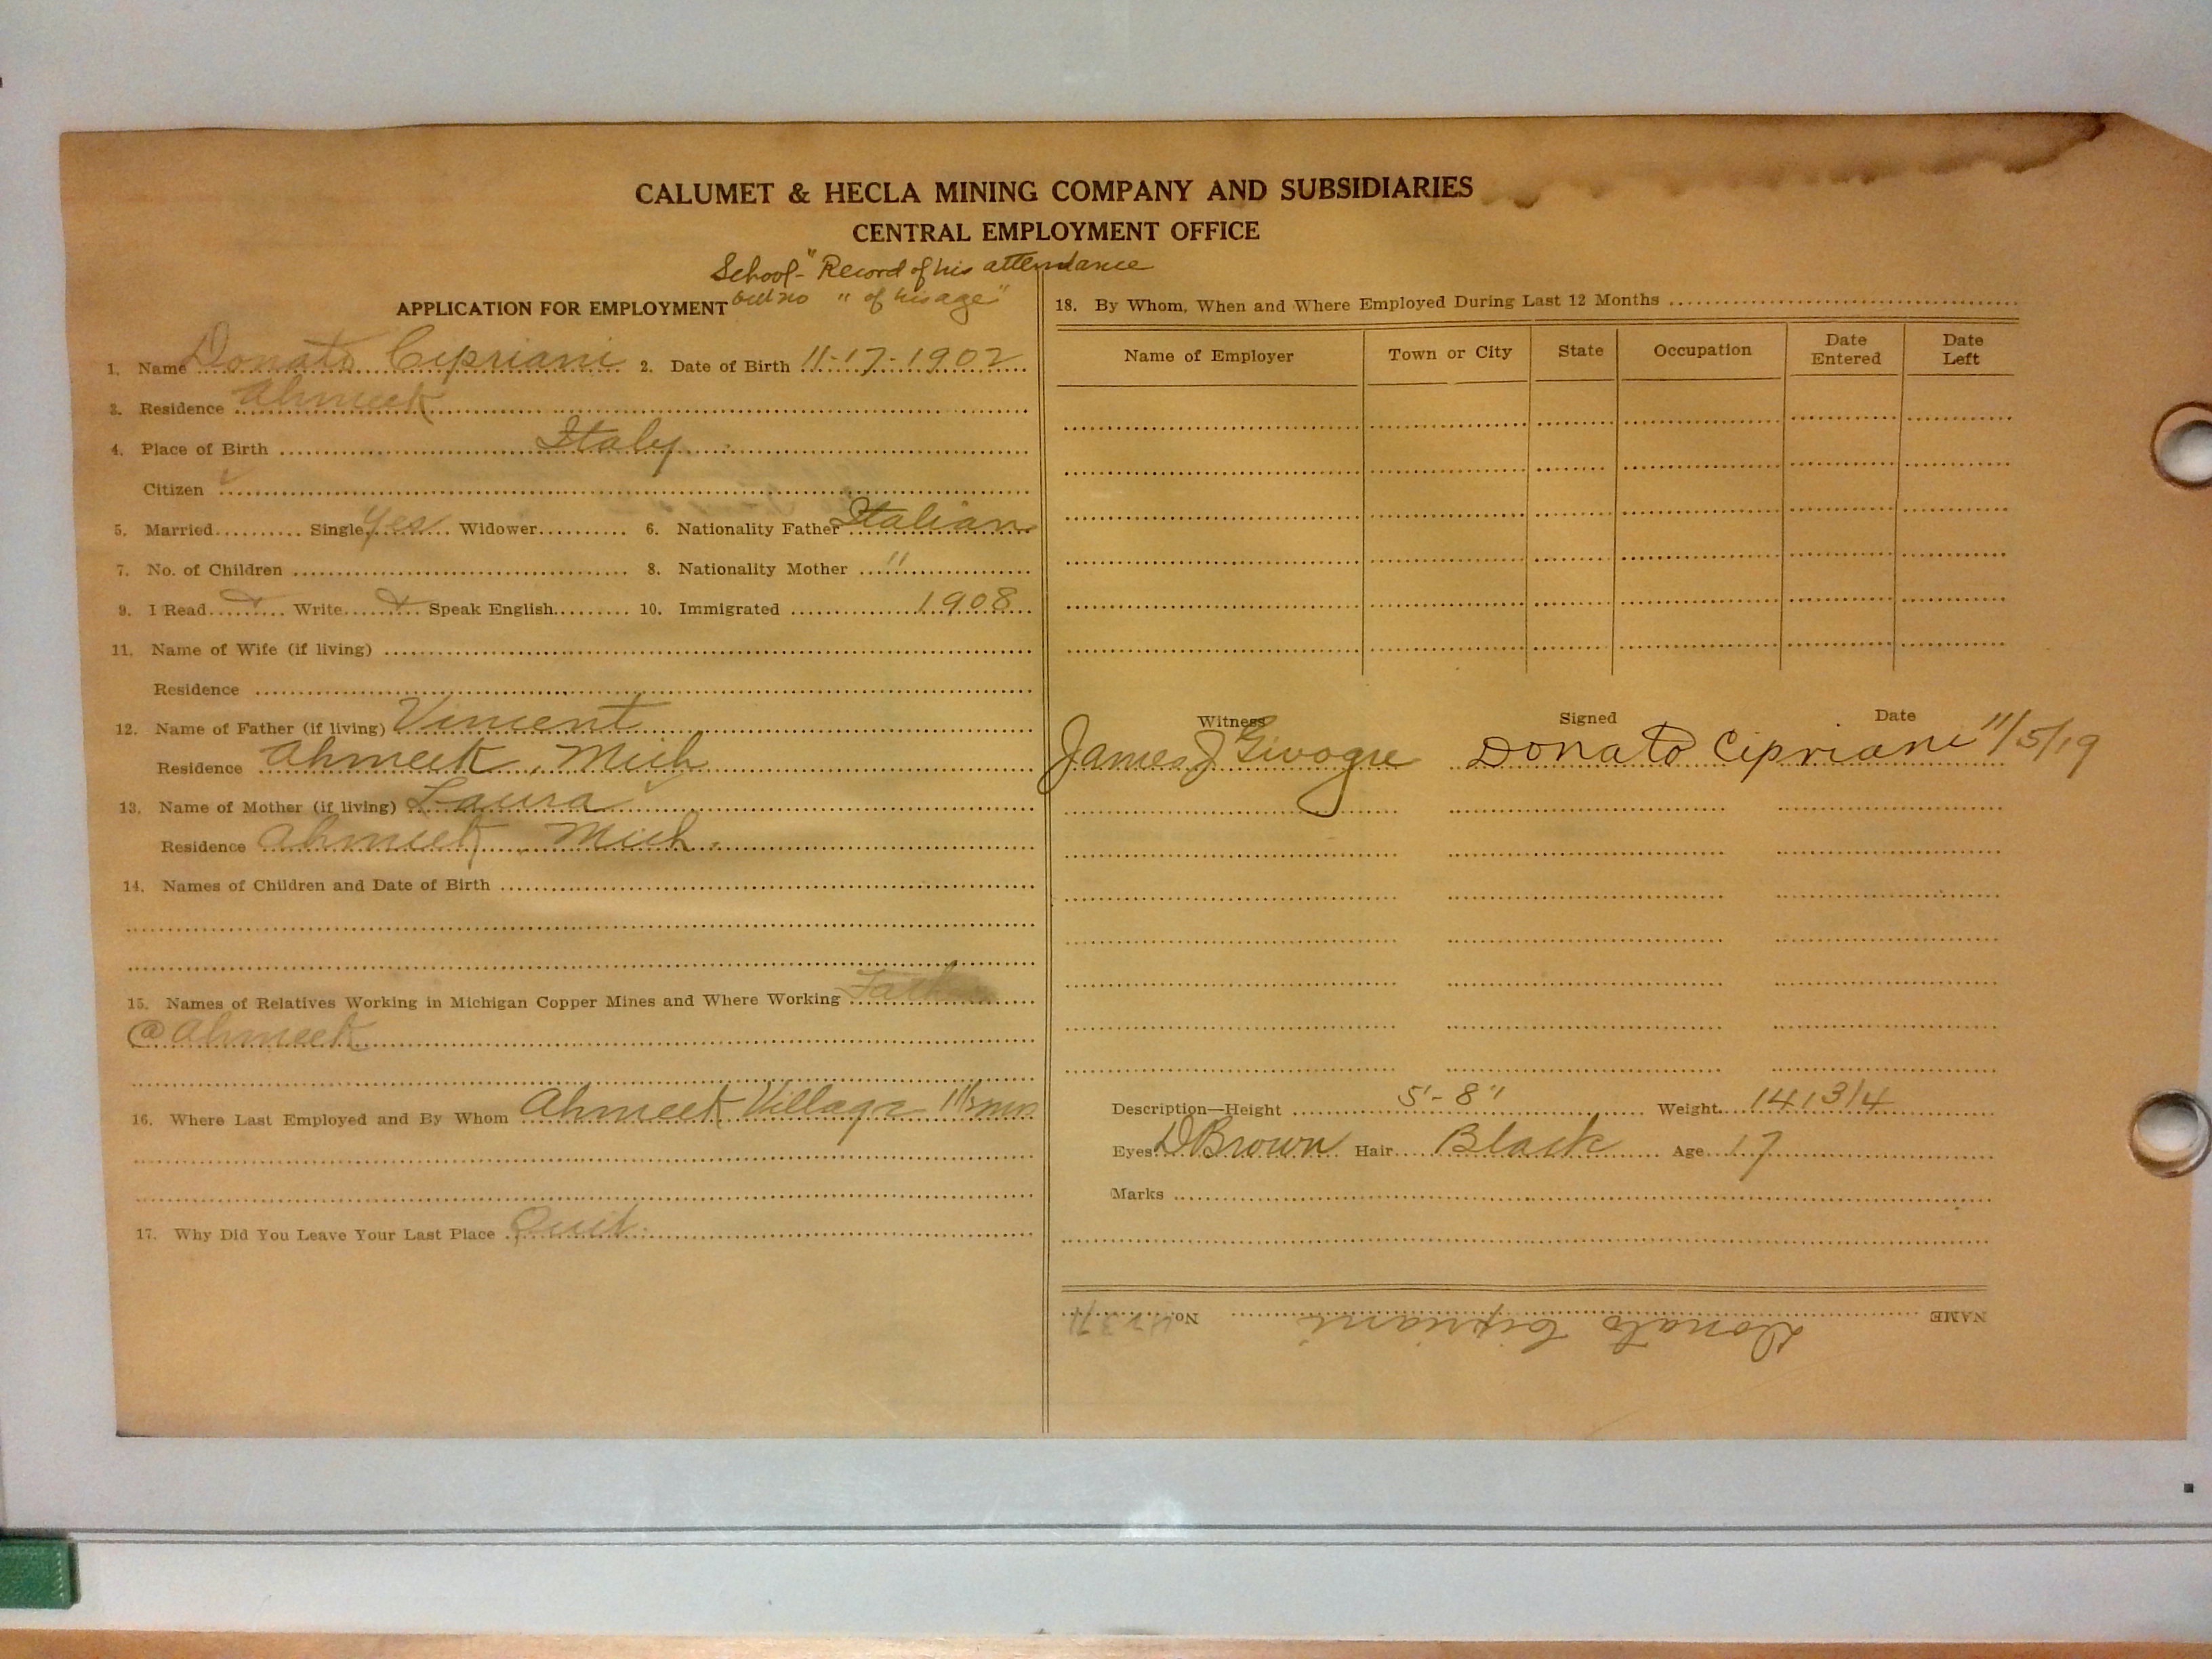 CALUMET & HECLA MINING COMPANY AND SUBSIDIARIES
CENTRAL EMPLOYMENT OFFICE
School- "Record of his attendance
but no " of his age"
APPLICATION FOR EMPLOYMENT
1. Name Donato Cipriani 2. Date of Birth 11-17-1902
3. Residence Ahmeek
4. Place of Birth Italy
Citizen
5. Married Single Yes Widower 6. Nationality Father Italian
7. No. of Children 8. Nationality Mother "
9. I Read Write Speak English 10. Immigrated 1908
11. Name of Wife (if living)
Residence
12. Name of Father (if living) Vincent
Residence Ahmeek, Mich
13. Name of Mother (if living) Laura
Residence Ahmeek, Mich.
14. Names of Children and Date of Birth
15. Names of Relatives Working in Michigan Copper Mines and Where Working Father
@ Ahmeek
16. Where Last Employed and By Whom Ahmeek Village
17. Why Did You Leave Your Last Place Quit.
18. By Whom, When and Where Employed During Last 12 Months
Name of Employer Town or City State Occupation Date Entered Date Left
Witness Signed Date
James J Donato Cipriani 11/5/19
Description—Height 5'-8" Weight 141 3/4
Eyes D Brown Hair Black Age 17
Marks
NAME Donato Cipriani No.